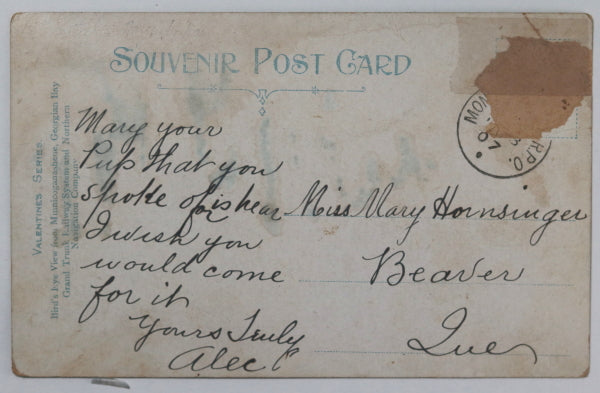 SOUVENIR POST CARD
VALENTINE'S SERIES.
Bird's Eye View from Minnicoganashene, Georgian Bay
Grand Trunk Railway System and Northern
Navigation Company
MON
07
R.P.O.
Mary your
Pup that you
spoke of is hear
I wish you
would come
for it
Yours Truly
Alec
Miss Mary Hornsinger
Beaver
Que